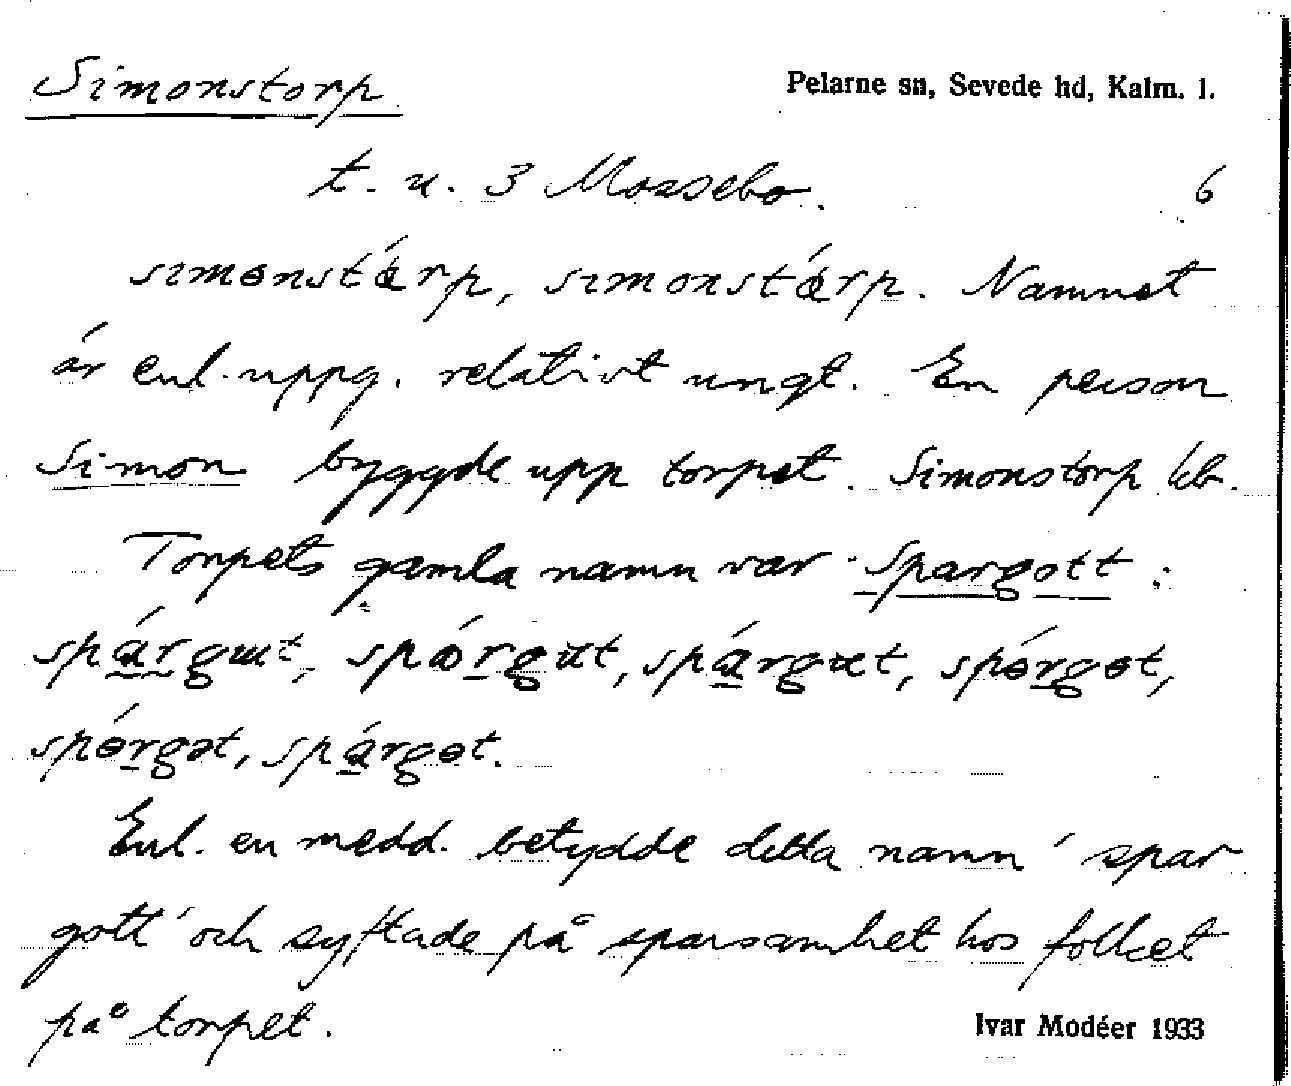 Simonstorp
Pelarne sn, Sevede hd, Kalm. l.
t. u. 3 Mossebo. 6
Namnet
är enl. uppg. relativt ungt. En person
Simon byggde upp torpet. Simonstorp kb.
Torpets gamla namn var Spargott:
Enl. en medd. betydde detta namn 'spar
gott' och syftade på sparsamhet hos folket
på torpet.
Ivar Modéer 1933